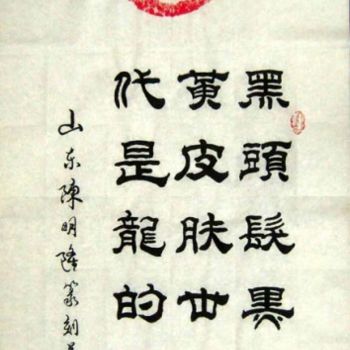 黑頭髮黑
黃皮肤世
代是龍的
山东陳明隆篆刻